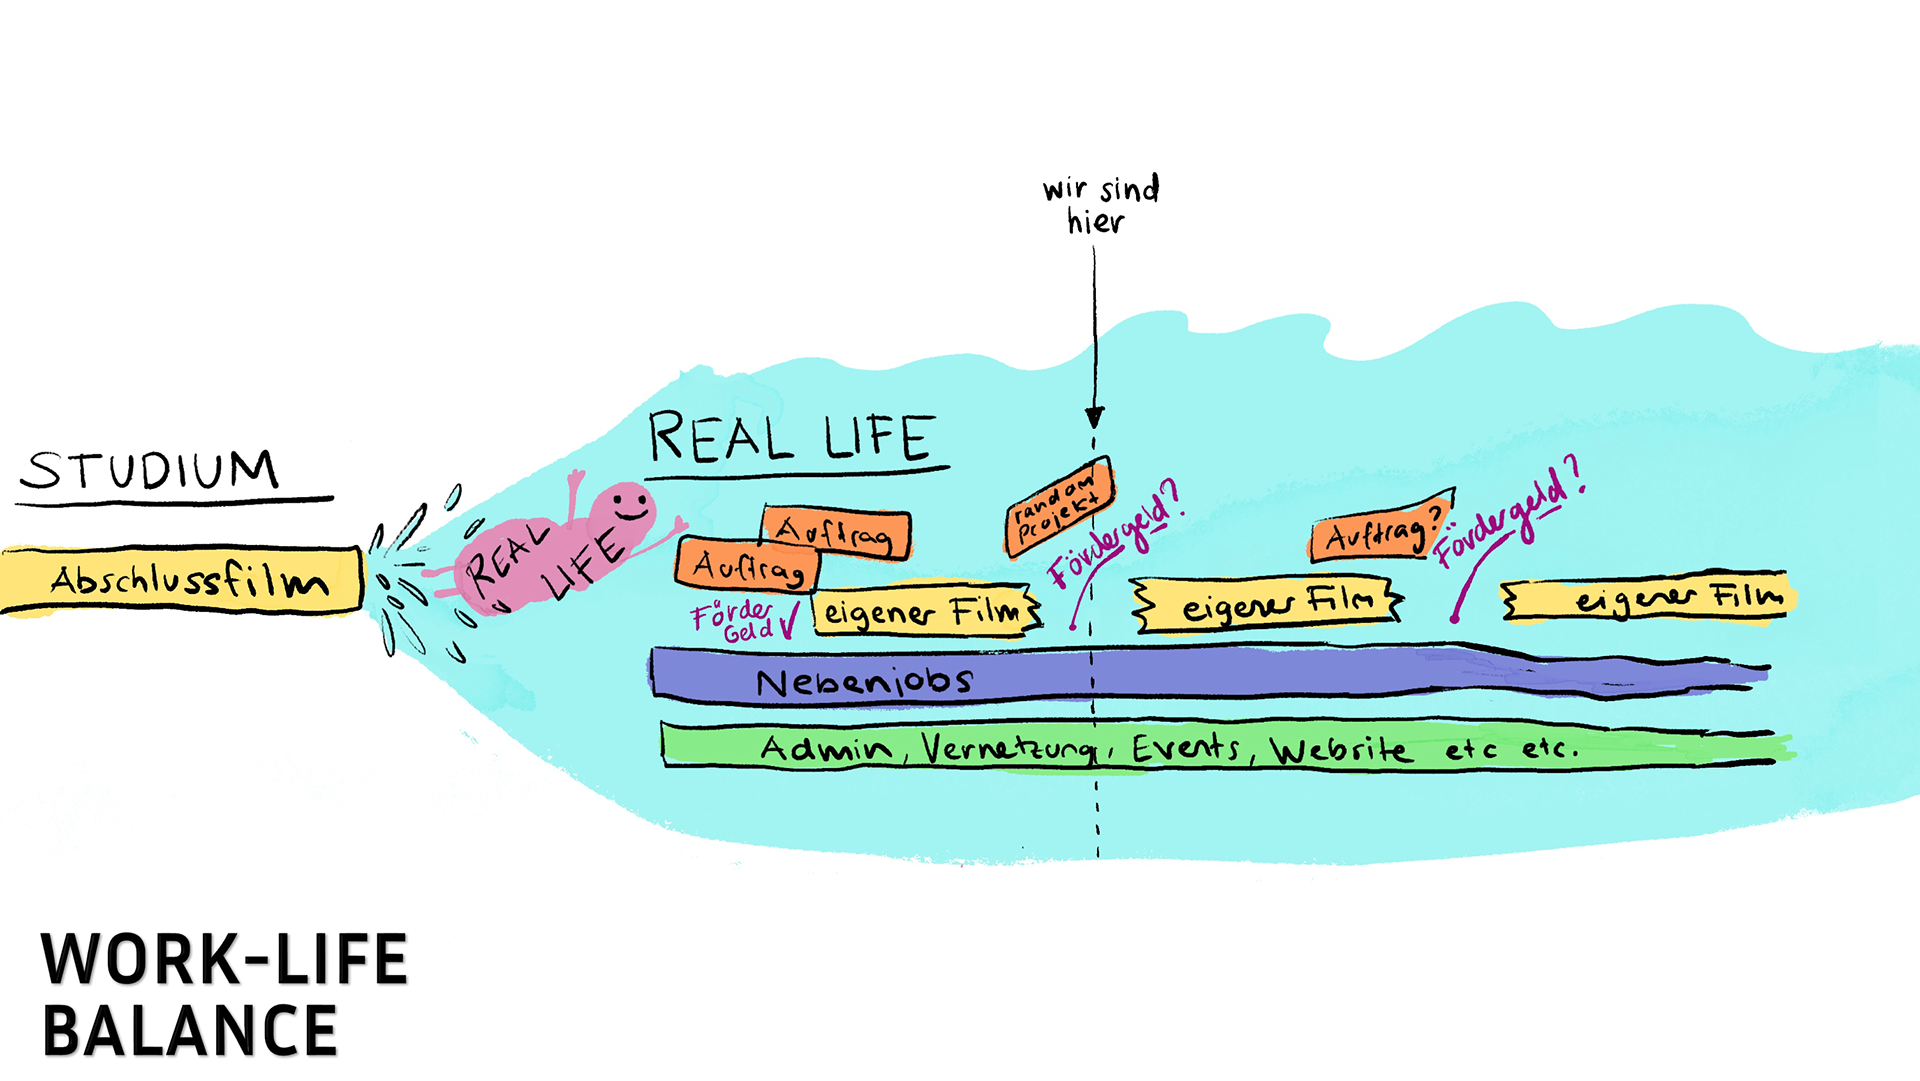 wir sind
hier
STUDIUM
REAL LIFE
Abschlussfilm
REAL
LIFE
Auftrag
Auftrag
random
Projekt
Fördergeld?
Auftrag?
Fördergeld?
Förder
Geld ✓
eigener Film
eigener Film
eigener Film
Nebenjobs
Admin, Vernetzung, Events, Website etc etc.
WORK-LIFE
BALANCE